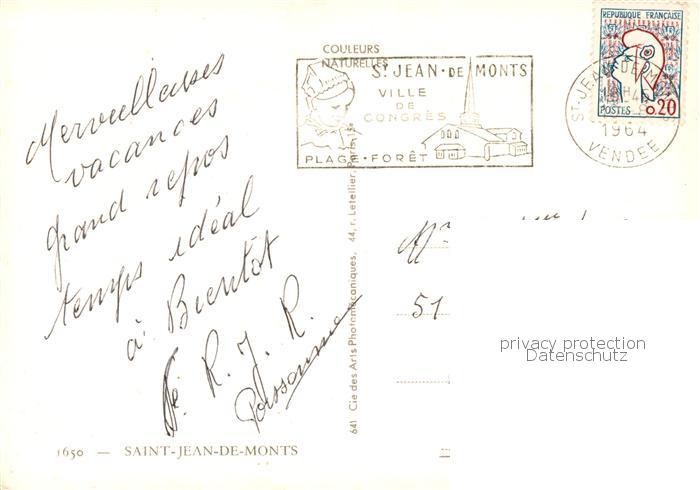 Merveilleuses
vacances
grand repos
temps idéal
à Bientôt
R. J. R.
COULEURS
NATURELLES
St JEAN-DE MONTS
VILLE
DE
CONGRÈS
PLAGE-FORÊT
REPUBLIQUE FRANÇAISE
POSTES 0,20
ST-JEAN-DE-M
1964
VENDEE
641 Cie des Arts Photomécaniques, 44, r. Letellier, Paris-15e
51
privacy protection
Datenschutz
1650 — SAINT-JEAN-DE-MONTS